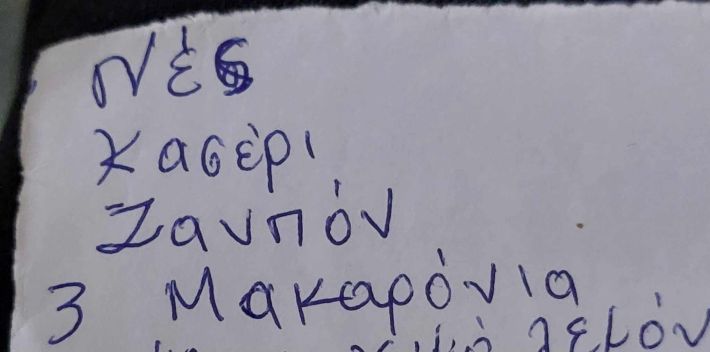 Νές
Κασέρι
Ζανπόν
3 Μακαρόνια
λεμόν